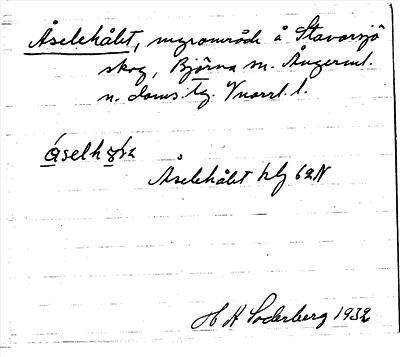 Åselehålet, myrområde å Stavarsjö
skog, Björna sn. Ångerml.
n. doms. tg. Vnorrl. l.
åselhɷ́ɫa
Åselehålet hbl 62N
H H Soderberg 1932